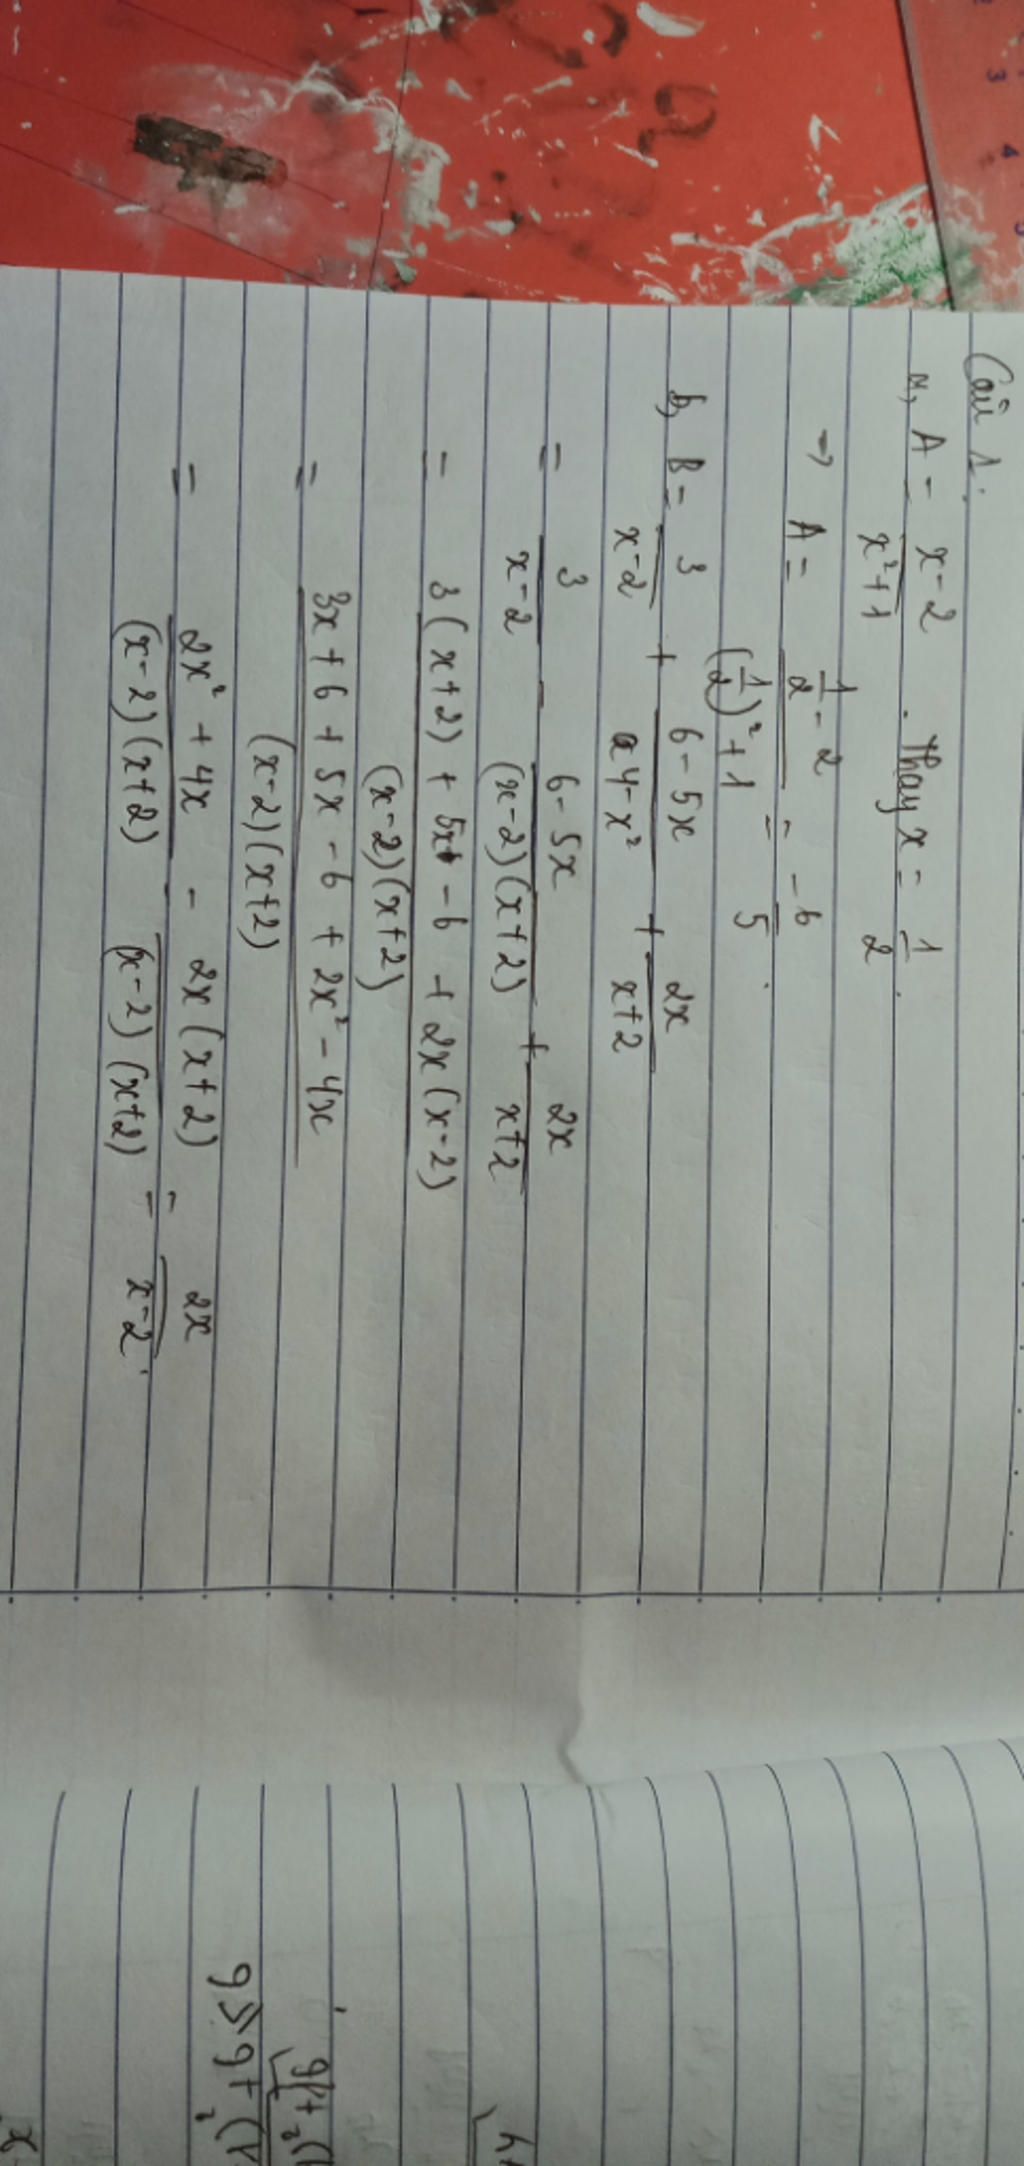 Câu 1.
a, A = \frac{x-2}{x^2+1} . Thay x = \frac{1}{2} .
→ A = \frac{\frac{1}{2}-2}{(\frac{1}{2})^2+1} = \frac{-6}{5} .
b, B = \frac{3}{x-2} + \frac{6-5x}{4-x^2} + \frac{2x}{x+2}
= \frac{3}{x-2} - \frac{6-5x}{(x-2)(x+2)} + \frac{2x}{x+2}
= \frac{3(x+2)+5x-6+2x(x-2)}{(x-2)(x+2)}
= \frac{3x+6+5x-6+2x^2-4x}{(x-2)(x+2)}
= \frac{2x^2+4x}{(x-2)(x+2)} - \frac{2x(x+2)}{(x-2)(x+2)} = \frac{2x}{x-2} .